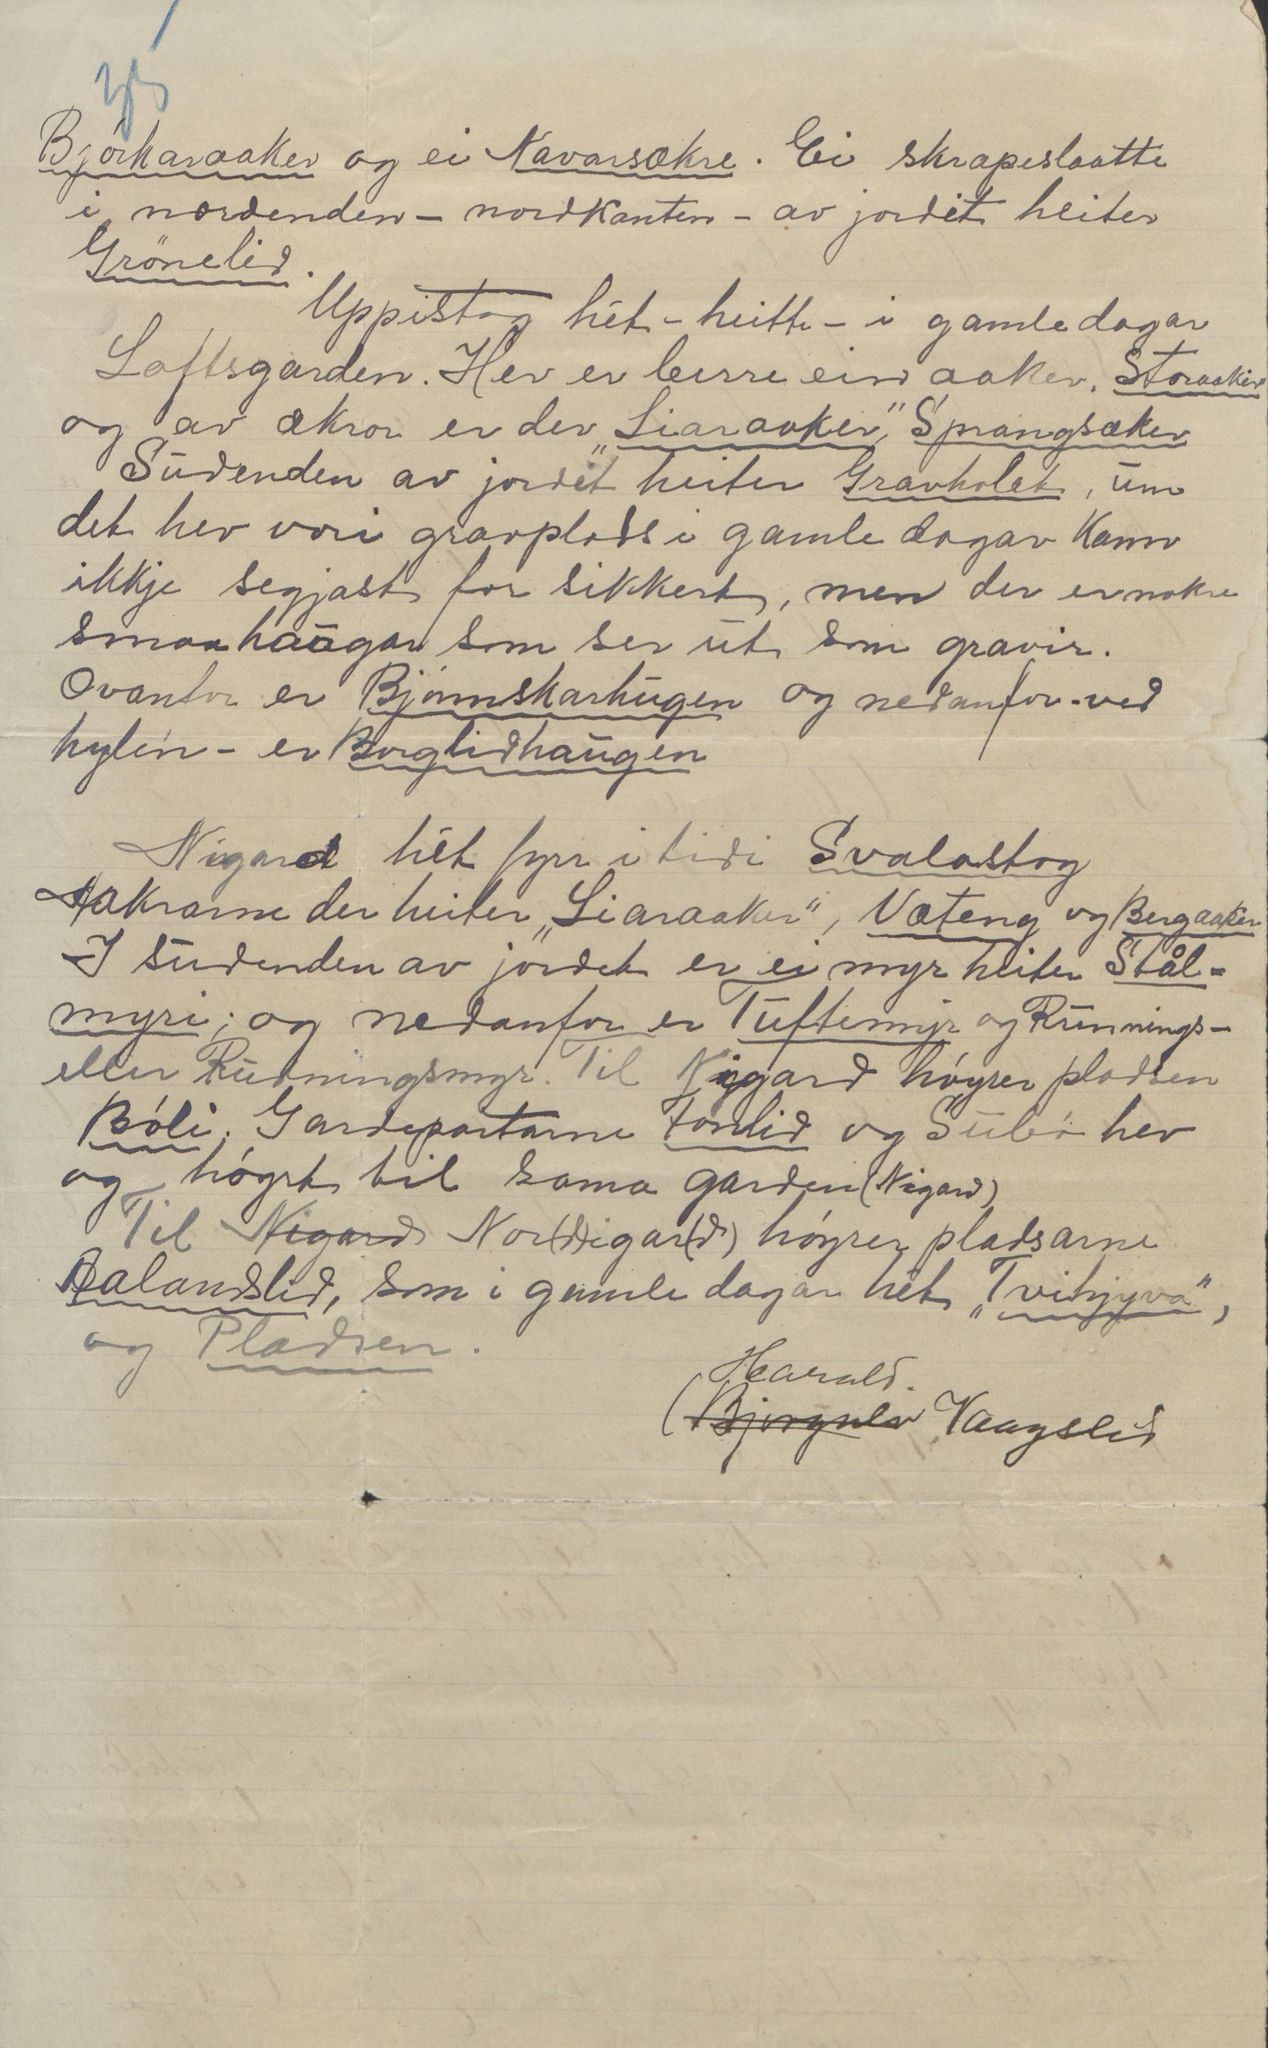 Björkaraaker og ei Navarsækre. Ei skrapeslaatte
i nordenden - nordkanten - av jordet heiter
Grönelid.
Uppistog hét - heitte - i gamle dagar
Loftsgarden. Her er berre ein aaker, Storaaker
og av ækror er der „Liaraaker", Sprangsæker
Sudenden av jordet heiter Gravholet, um
det hev vori gravplads i gamle dagar kann
ikkje segjast for sikkert, men der er nokre
smaahaugar som ser ut som gravir.
Ovanfor er Bjönnskarhugen og nedanfor - ved
hylén - er Borglidhaugen
Nigard hét fyrr i tidi Svalastog
Aakrarne der heiter „Liaraaker", Væteng og Bergaaker
I sudenden av jordet er ei myr heiter Stål-
myri; og nedanfor er Tuftemyr og Runnings-
eller Rudningsmyr. Til Nigard höyrer pladsen
Böli. Gardepartarne Tonlid og Subö hev
og höyrt til sama garden (Nigard)
Til Nigard Nor(d)igar(d) höyrer pladsarne
Aalandslid, som i gamle dagar hét „Tvihjyva",
og Pladsen.
Harald.
(Bjorgulv Vaagslid